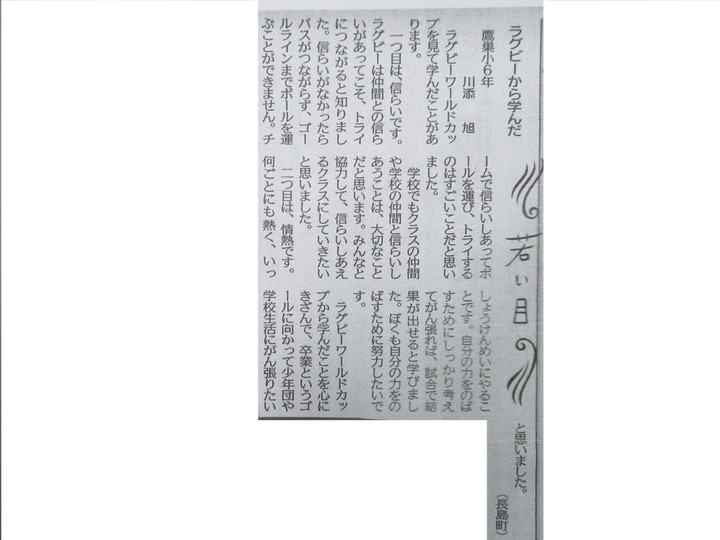 ラグビーから学んだ
鷹巣小6年
川添 旭
ラグビーワールドカッ
プを見て学んだことがあ
ります。
一つ目は、信らいです。
ラグビーは仲間との信ら
いがあってこそ、トライ
につながると知りまし
た。信らいがなかったら
パスがつながらず、ゴー
ルラインまでボールを運
ぶことができません。チ
ームで信らいしあってボ
ールを運び、トライする
のはすごいことだと思い
ました。
学校でもクラスの仲間
や学校の仲間と信らいし
あうことは、大切なこと
だと思います。みんなと
協力して、信らいしあえ
るクラスにしていきたい
と思いました。
二つ目は、情熱です。
何ごとにも熱く、いっ
しょうけんめいにやるこ
とです。自分の力をのば
すためにしっかり考え
てがん張れば、試合で結
果が出せると学びまし
た。ぼくも自分の力をの
ばすために努力したいで
す。
ラグビーワールドカッ
プから学んだことを心に
きざんで、卒業というゴ
ールに向かって少年団や
学校生活にがん張りたい
と思いました。
(長島町)
若い目